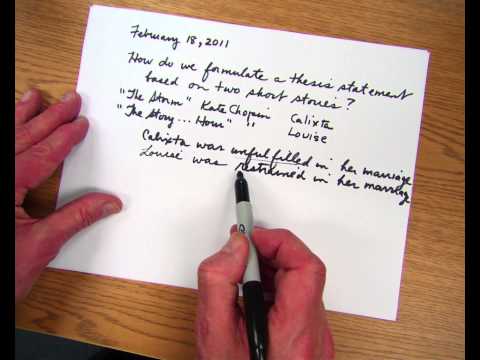 February 18, 2011
How do we formulate a thesis statement
based on two short stories?
"The Storm" Kate Chopin Calixta
"The Story... Hour" " Louise
Calixta was unfulfilled in her marriage
Louise was restrained in her marriage